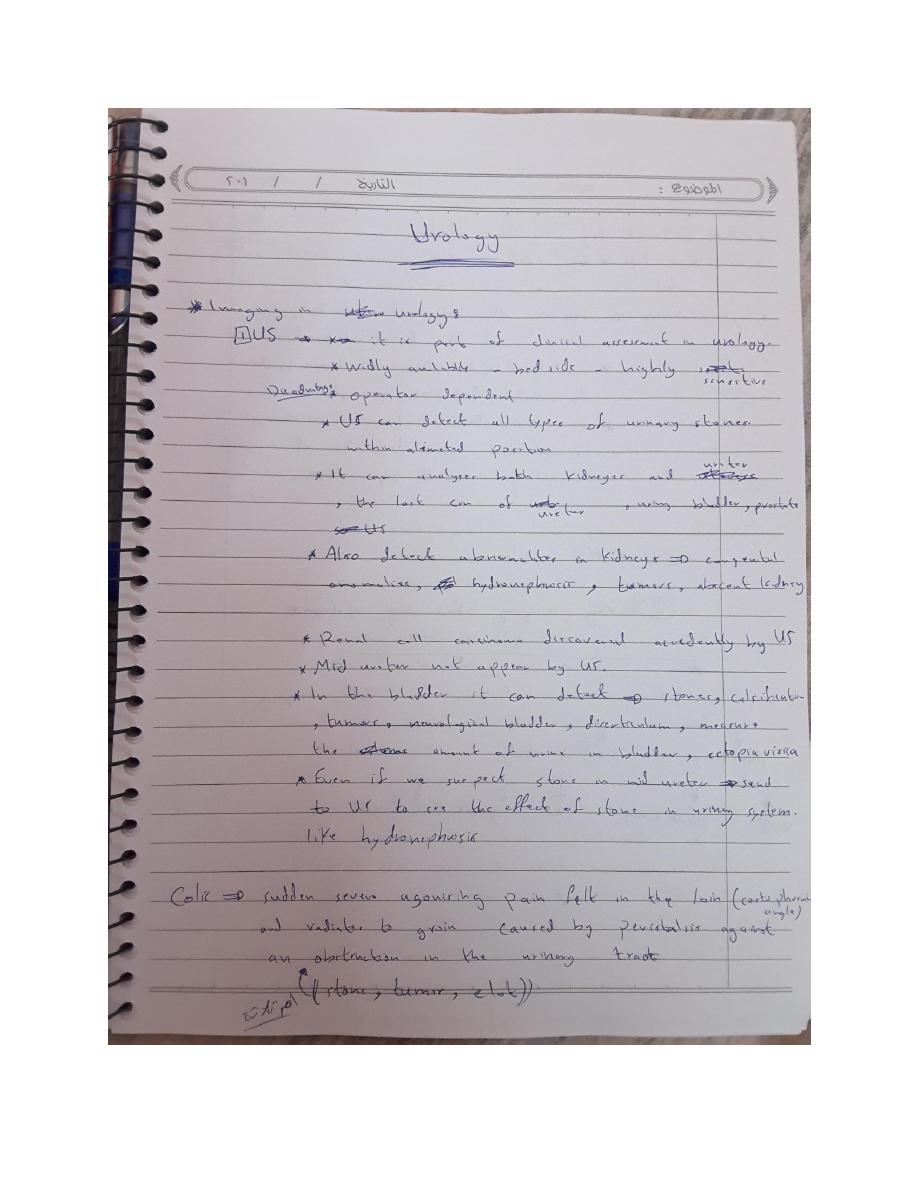 الموضوع : التاريخ / / ٢٠١
Urology
* Imaging in urology :
1 US ⇒ it is part of clinical assesement in urology.
* Widly avaliable - bed side - highly sensitive
Disadvantage * operator dependent
* US can detect all types of urinary stones
within alimeted position
* It can analyzes both kidneyes and ureter
, the last cm of ureter , urinry bladder, prostate
US
* Also detect abnormalites in kidneys ⇒ congenital
anomalies, hydronephrosis, tumors, abscent kidney
* Renal cell carcinoma discovered accedently by US
* Mid ureter not appear by US.
* In the bladder it can detect ⇒ stones, calcification
, tumors, neurological bladder, diverticulum, measure
the amount of urine in bladder, ectopia visica
* Even if we suspect stone in mid ureter ⇒ send
to US to see the effect of stone in urinry system.
like hydronephrosis
Colic ⇒ sudden severe agonising pain felt in the loin (costophrenic
angle)
and radiates to groin caused by peristalsis against
an obstruction in the urinary tract
((stone, tumor, clot))